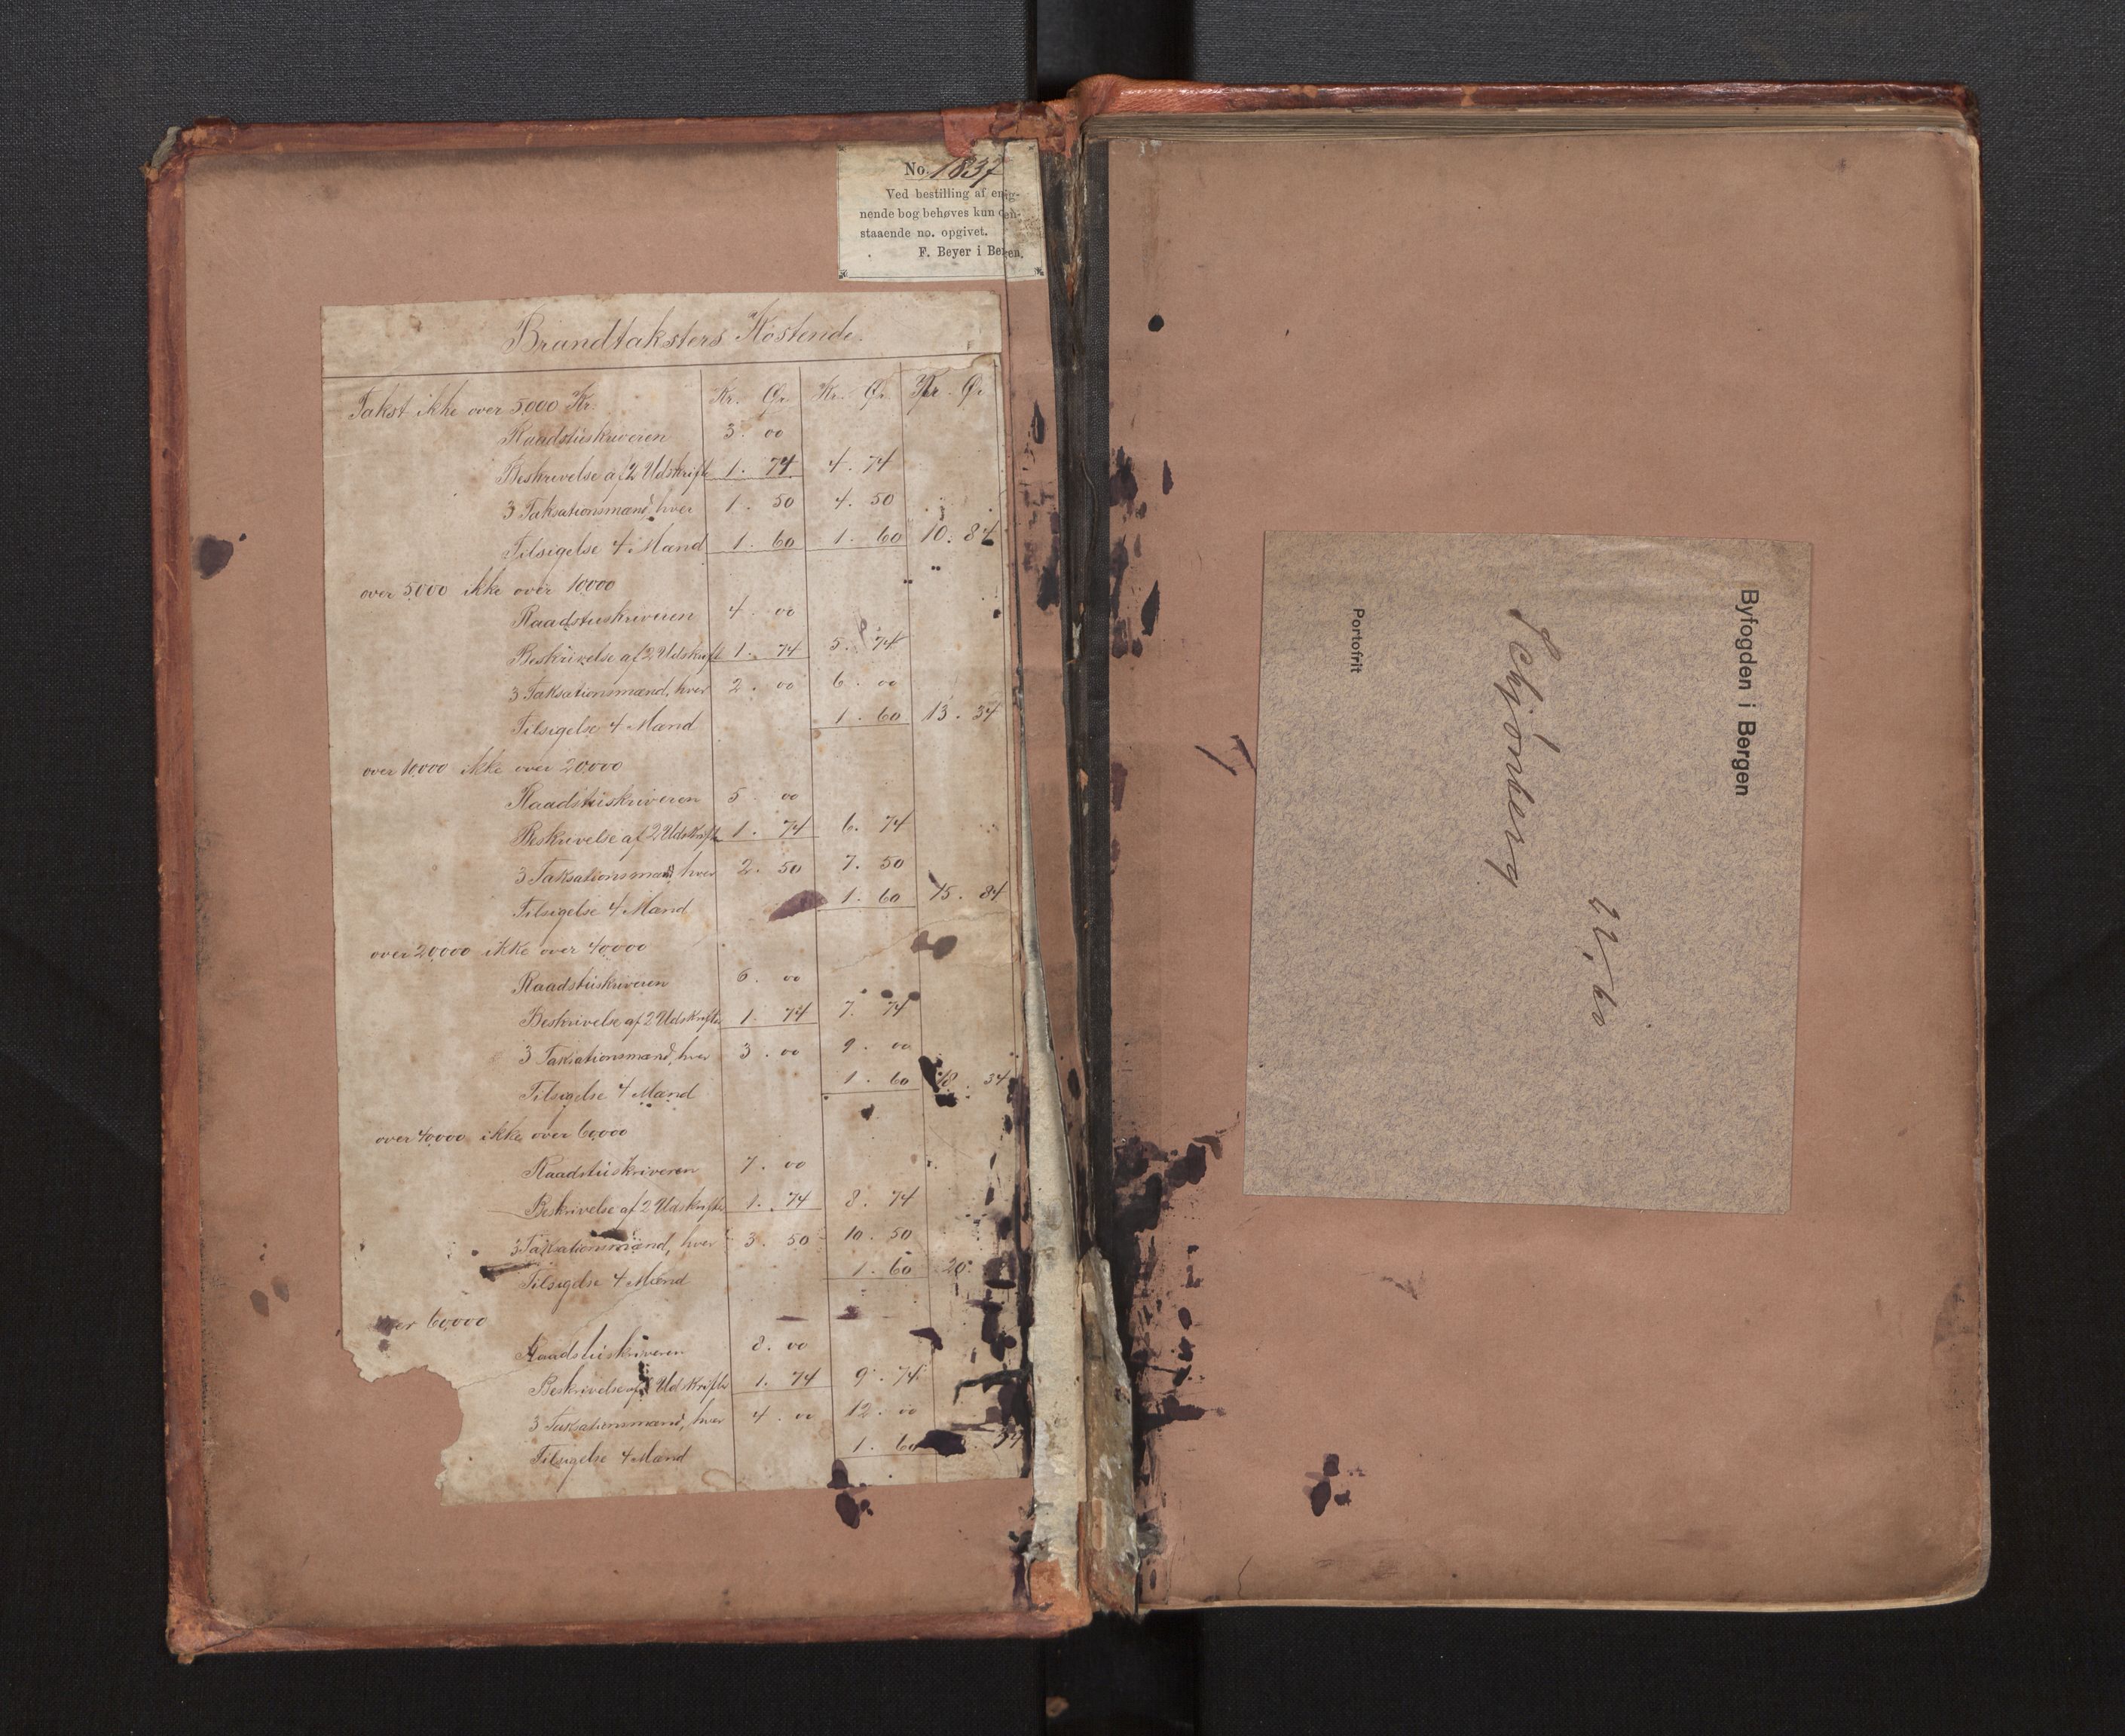 No. 1837
Ved bestilling af enig-
nende bog behøves kun den-
staaende no. opgivet.
F. Beyer i Bergen.
Brandtaksters Kostende.
Kr. Ør Kr. Ør Kr. Ør
Takst ikke over 5000 Kr.
Raadstuskriveren 3. 00
Beskrivelse af 2 Udskrifter 1. 74 4. 74
3 Taksationsmænd, hver 1. 50 4. 50
Tilsigelse 4 Mænd 1. 60 1. 60 10. 84
over 5000 ikke over 10000
Raadstuskriveren 4. 00
Beskrivelse af 2 Udskrift 1. 74 5. 74
3 Taksationsmænd, hver 2. 00 6. 00
Tilsigelse 4 Mænd 1. 60 13. 34
over 10000 ikke over 20000
Raadstuskriveren 5 00
Beskrivelse af 2 Udskrifter 1. 74 6. 74
3 Taksationsmænd, hver 2. 50 7. 50
Tilsigelse 4 Mænd 1. 60 15. 84
over 20000 ikke over 40000
Raadstuskriveren 6. 00
Beskrivelse af 2 Udskrifter 1. 74 7. 74
3 Taksationsmænd, hver 3. 00 9. 00
Tilsigelse 4 Mænd 1. 60 18. 34
over 40000 ikke over 60000
Raadstuskriveren 7. 00
Beskrivelse af 2 Udskrifter 1. 74 8. 74
3 Taksationsmænd, hver 3. 50 10. 50
Tilsigelse 4 Mænd 1. 60 20.
over 60000
Raadstuskriveren 8. 00
Beskrivelse af 2 Udskrifter 1. 74 9. 74
3 Taksationsmænd, hver 4. 00 12. 00
Tilsigelse 4 Mænd 1. 60 34
Byfogden i Bergen
Portofrit
Schjönberg